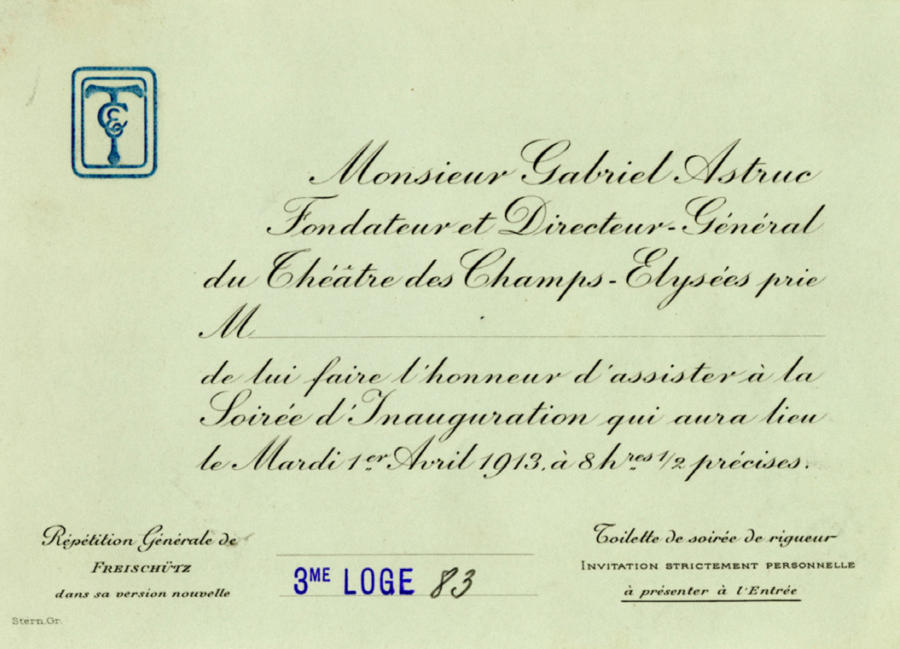 TCE
Monsieur Gabriel Astruc
Fondateur et Directeur-Général
du Théâtre des Champs-Elysées prie
M
de lui faire l'honneur d'assister à la
Soirée d'Inauguration qui aura lieu
le Mardi 1er Avril 1913, à 8 hres 1/2 précises.
Répétition Générale de
FREISCHÜTZ
dans sa version nouvelle
3ME LOGE 83
Toilette de soirée de rigueur
INVITATION STRICTEMENT PERSONNELLE
à présenter à l'Entrée
Stern, Gr.